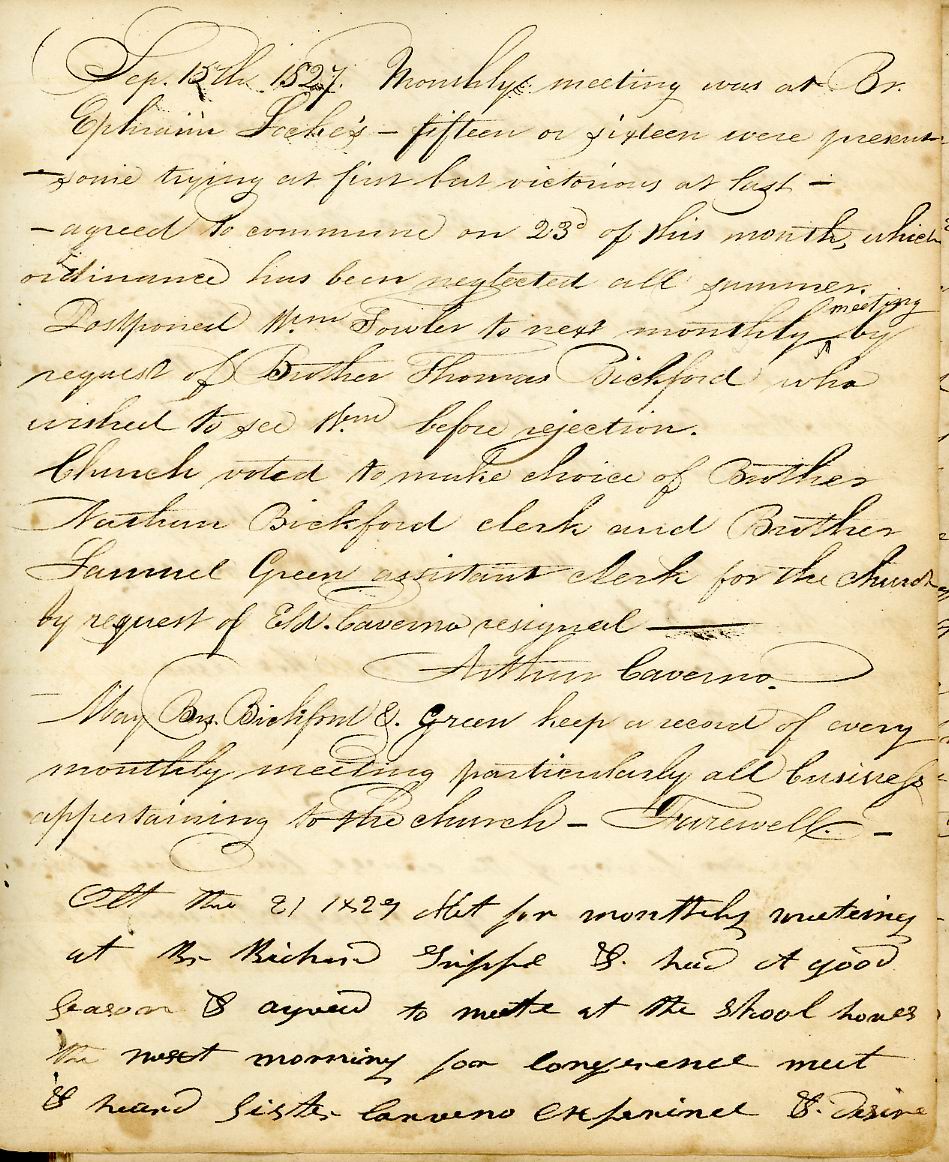 Sep. 15th. 1827. Monthly meeting was at Br.
Ephraim Locke's – fifteen or sixteen were present
– some trying at first but victorious at last –
– agreed to commune on 23d of this month, which
ordinance has been neglected all summer.
Postponed Wm Fowler to next monthly meeting by
request of Brother Thomas Bickford who
wished to see Wm before rejection.
Church voted to make choice of Brother
Bickford clerk and Brother
Samuel Green assistant clerk for the church
by request of Eld. Caverno resigned —
Arthur Caverno.
– May Brs. Bickford & Green keep a record of every
monthly meeting particularly all business
appertaining to the church – Farewell –
the 21 1827 Met for monthly meeting
at Br Richard & had a good
Season & agreed to meete at the skool houes
the next morning for conference meet
& heard Sister & desire